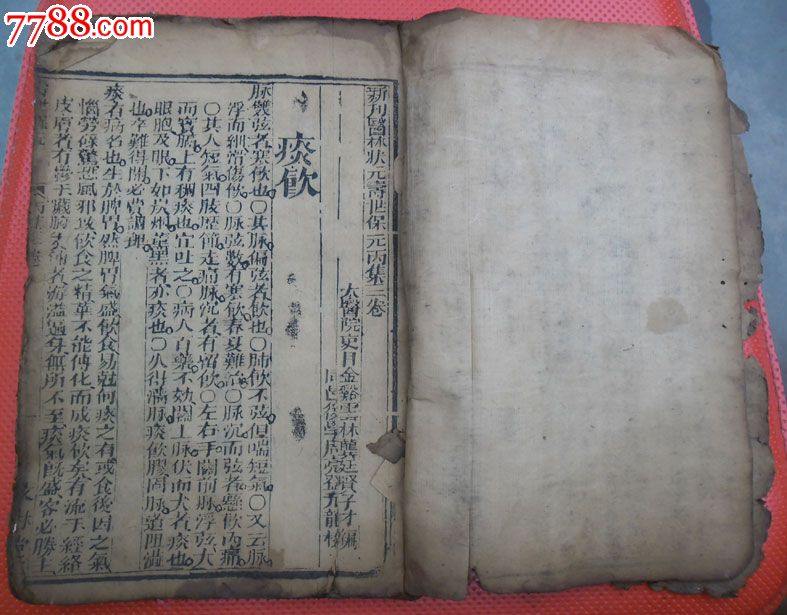 7788.com
新刊醫林狀元壽世保元丙集三卷
太醫院吏目金谿雲林龔廷賢子才編
同邑後學周亮登九龍校
痰飲
脉雙弦者寒飲也〇其脉偏弦者飲也〇肺飲不弦但喘短氣〇又云脉
浮而細滑傷飲〇脉弦數有寒飲春夏難治〇脉沉而弦者懸飲內痛
〇其人短氣四肢歷節走痛脉沉者有留飲〇左右手關前脉浮弦大
而實膈上有稠痰也宜吐之〇病人百藥不効關上脉伏而大者痰也
眼胞及眼下如炭烟薰黑者亦痰也〇久得濇脉痰飲膠固脉道阻濇
也卒難得開必費調理
痰者病名也生於脾胃然脾胃氣盛飲食易尅何痰之有或食後因之氣
惱勞碌驚恐風邪致飲食之精華不能傳化而成痰飲矣有流于經絡
皮膚者有滲于臟腑者游溢遍身無所不至痰氣既盛客必勝主